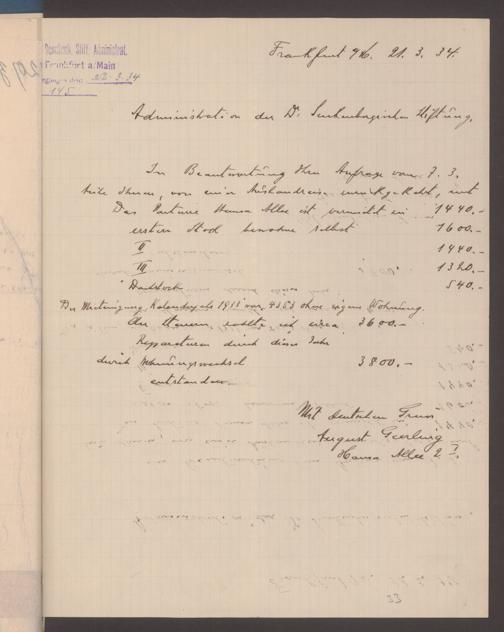 Senckenb. Stift. Administrat.
Frankfurt a/Main
22.3.34
145
Frankfurt a/M. 21. 3. 34.
Administration der Dr. Senckenbergischen Stiftung.
In Beantwortung Ihrer Anfrage vom 7. 3.
teile Ihnen, von einer Auslandreise zurückgekehrt, mit
Das Parterre Hansa Allee ist vermietet zu 1440.-
ersten Stock bewohne selbst 1600.-
II 1440.-
III 1320.-
Dachstock 540.-
Der Mieteingang Kalenderjahr 1933 war 4353 ohne eigene Wohnung.
An Steuern zahlte ich circa 3600.-
Reparaturen durch dieses Jahr
durch Wohnungswechsel 3800.-
entstanden
Mit Deutschem Gruss
August
Hansa Allee 2
33